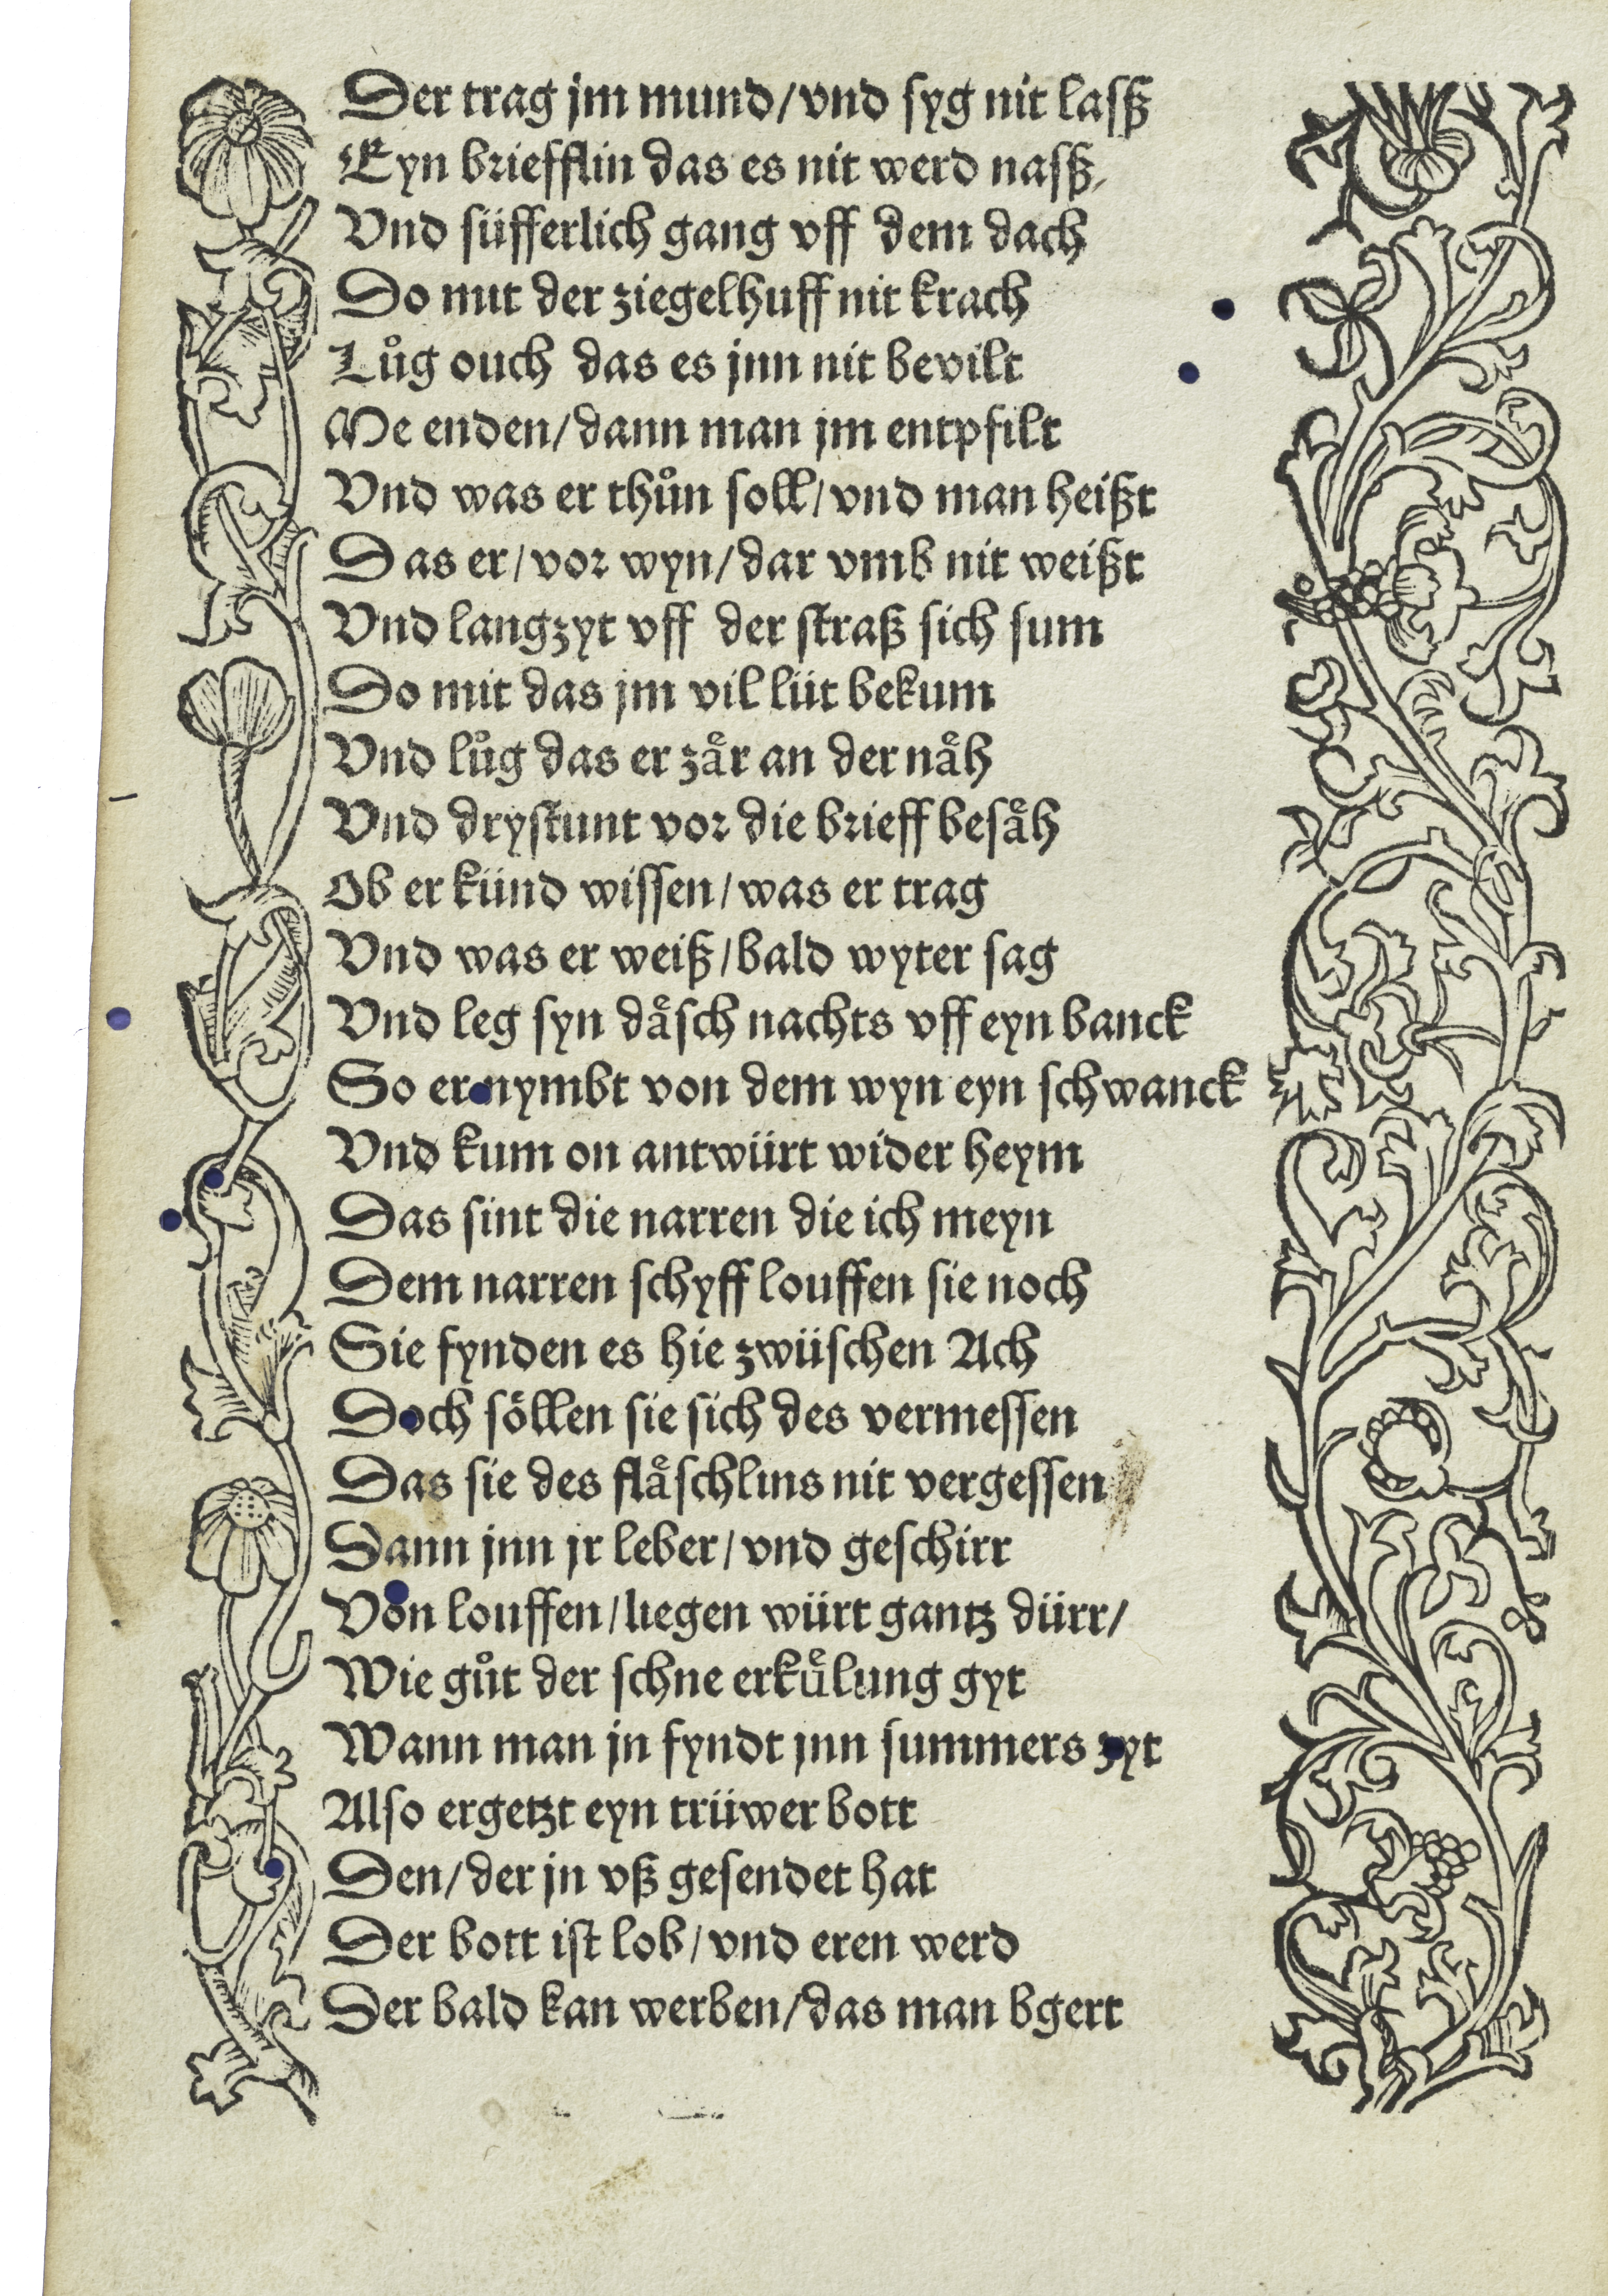 Der trag jm mund/vnd syg nit lasß
Eyn briefflin das es nit werd nasß/
Vnd süfferlich gang vff dem dach
Do mit der ziegelhuff nit krach
Lůg ouch das es jnn nit bevilt
Me enden/dann man jm entpfilt
Vnd was er thůn soll/vnd man heißt
Das er/vor wyn/dar vmb nit weißt
Vnd langzyt vff der straß sich sum
Do mit das jm vil lüt bekum
Vnd lůg das er zaͤr an der naͤh
Vnd drystunt vor die brieff besaͤh
Ob er künd wissen/was er trag
Vnd was er weiß/bald wyter sag
Vnd leg syn daͤsch nachts vff eyn banck
So er nymbt von dem wyn eyn schwanck
Vnd kum on antwürt wider heym
Das sint die narren die ich meyn
Dem narren schyff louffen sie noch
Sie fynden es hie zwüschen Ach
Doch soͤllen sie sich des vermessen
Das sie des flaͤschlins nit vergessen
Dann jnn jr leber/vnd geschirr
Von louffen/liegen würt gantz dürr/
Wie gůt der schne erkuͤlung gyt
Wann man jn fyndt jnn summers zyt
Also ergetzt eyn trüwer bott
Den/der jn vß gesendet hat
Der bott ist lob/vnd eren werd
Der bald kan werben/das man bgert